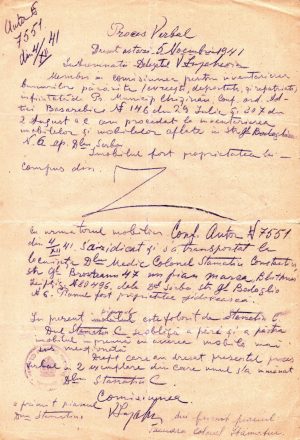 Autor 6
7551
din 4/XII 41
Proces Verbal
Dresat astăzi 5 Noembrie 1941
Subsemnata Delegată V. Lozahevici
Membru a comisiunei pentru inventarierea
bunurilor părăsite evreești, deportate, și repatriate,
înființată de Pr. Municip Chișinău Conf. ord.
Basarabiei N 146 din 29 Iulie și 307 din
2 August a.c. am procedat la inventarierea
mobilelor și imobilelor aflate în str. gl. Badoglio
N. 6 ap. Dlui Serba
Imobilul fost proprietatea lui
compus din:
Z
cu următorul mobilier Conf. Autor N 7551
din 4/XII 41. S'a ridicat și s'a transportat la
locuința Dlui Medic Colonel Stamatiu Constantin
str. gl. Broșteanu 47 un pian marca Blüthner
Leipzig N 80496, dela Dl Serba str. gl. Badoglio
N 6. Pianul fost proprietatea jidovească.
În prezent mobilul este folosit de Stamatiu C
Dnul Stamatiu C se obligă a păzi și a păstra
mobilul în primire în
sus menționată
După care am dresat prezentul proces
verbal în 2 exemplare din care unul s'a înmânat
Dlui Stamatiu C.
Comisiunea
a primit pianul
Dna Stamatiu
V. Lozah
am primit pianul
Colonel Stamatiu